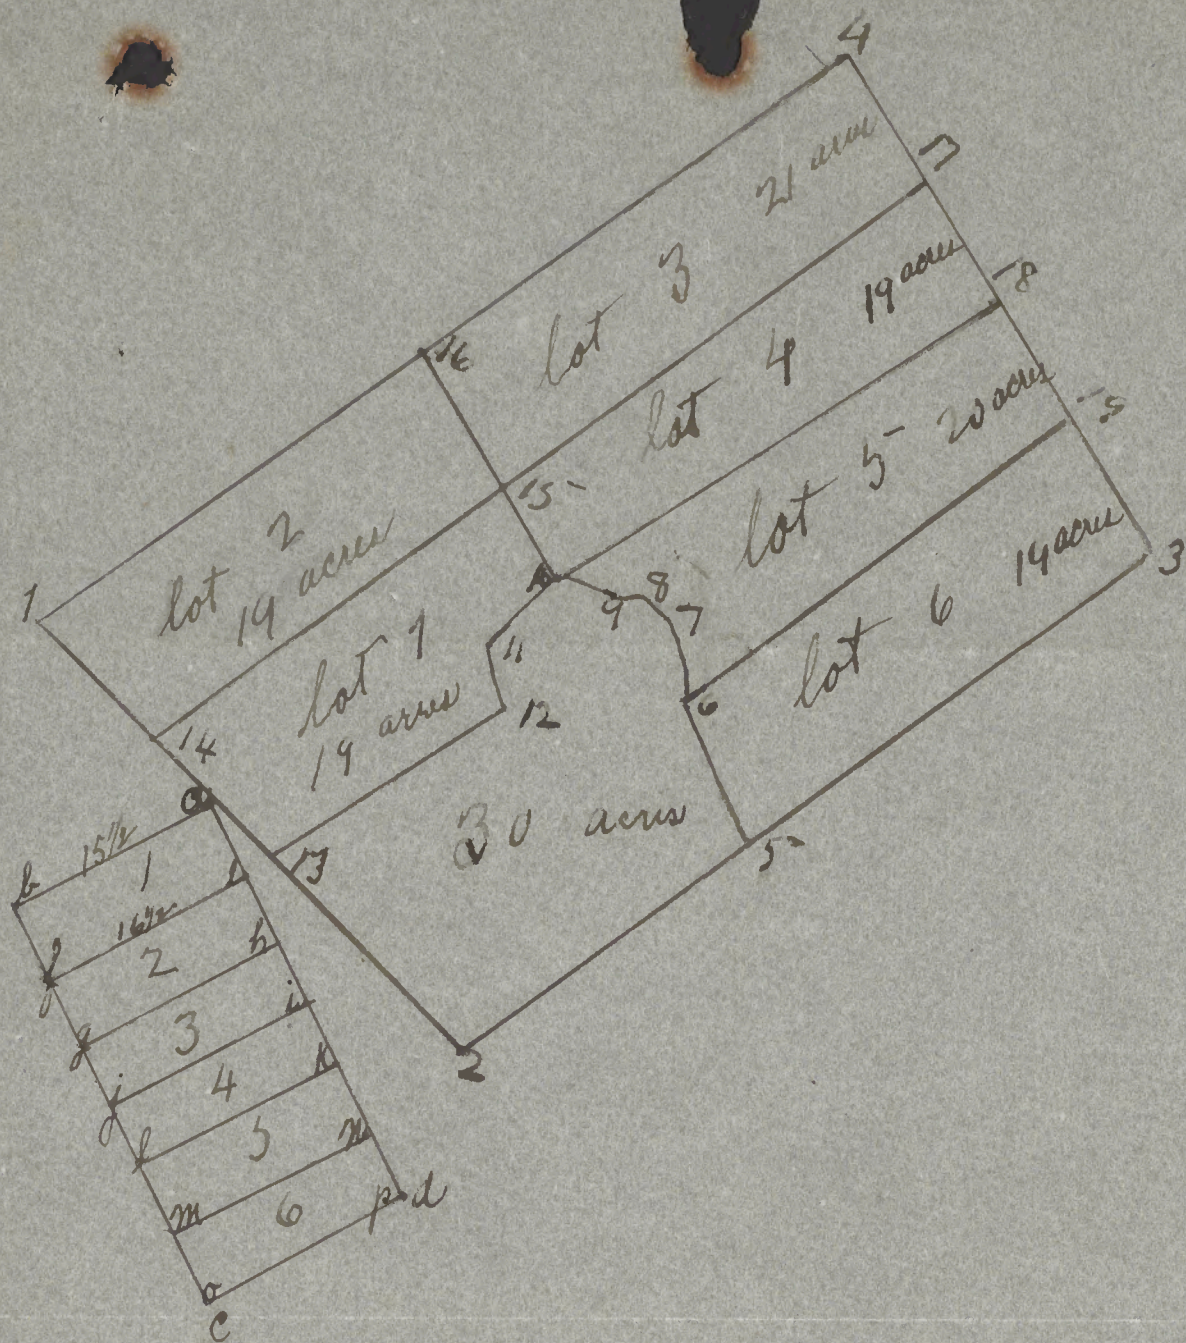 4
lot 3 21 acres
7
lot 4 19 acres
8
lot 5 20 acres
lot 6 19 acres
3
16
15
1
lot 2
19 acres
lot 1
19 acres
14
11
12
13
9
8
7
6
5
30 acres
2
a
b 15 1/2
1
f 16 1/2
2 h
g 3 i
j 4 k
l 5 n
m 6 p d
o
c